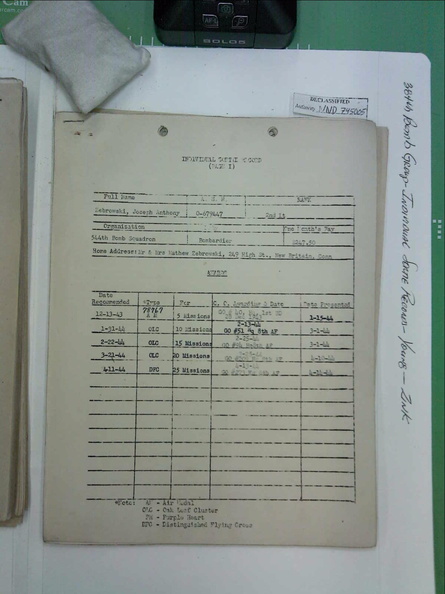 SOLOS
DECLASSIFIED
Authority NND 745005
384th Bomb Group - Individual Sortie Record - Young - Zink
INDIVIDUAL SORTIE RECORD
(PAGE I)
Full Name A. S. N. RANK
Zebrowski, Joseph Anthony O-679447 2nd Lt
Organization One Month's Pay
544th Bomb Squadron Bombardier
Home Address: Mr & Mrs Mathew Zebrowski, 249 High St., New Britain, Conn.
AWARDS
Date Recommended *Type For G. O. Awarding & Date Date Presented
12-13-43 AM 5 Missions 1-15-44
1-31-44 OLC 10 Missions 2-13-44 GO #51 Hq 8th AF 3-1-44
2-22-44 OLC 15 Missions 2-25-44 3-1-44
3-21-44 OLC 20 Missions
4-11-44 DFC 25 Missions
*Note: AM - Air Medal
OLC - Oak Leaf Cluster
PH - Purple Heart
DFC - Distinguished Flying Cross